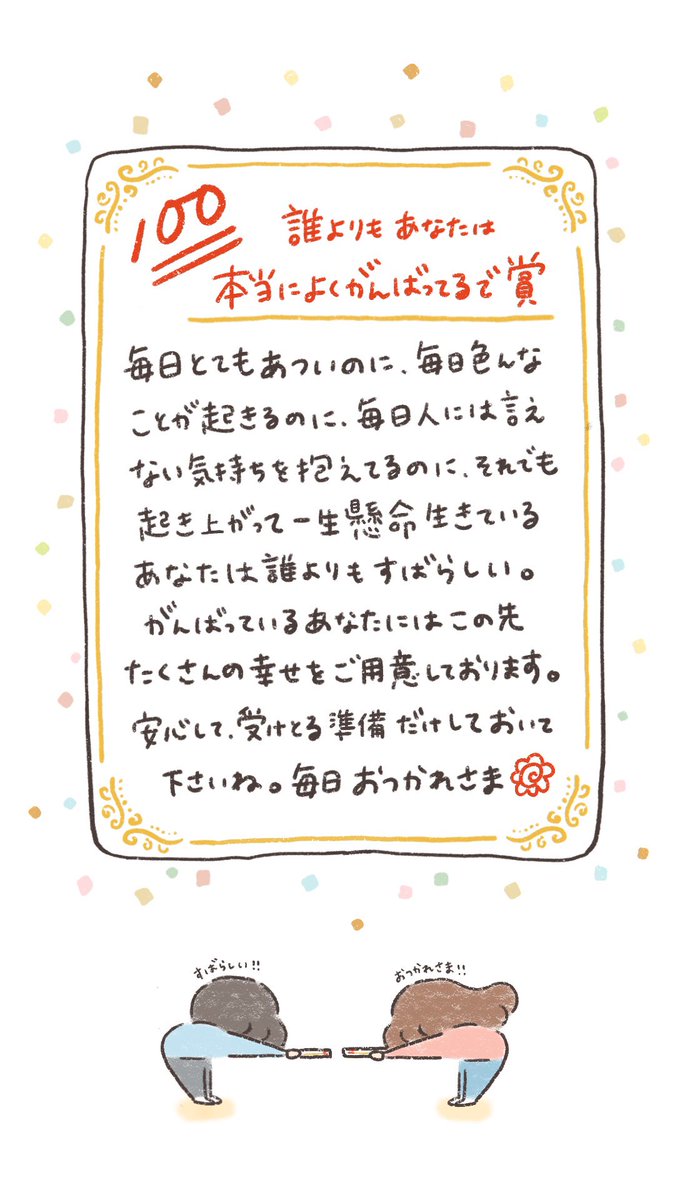 100
誰よりもあなたは
本当によくがんばってるで賞
毎日とてもあついのに、毎日色んな
ことが起きるのに、毎日人には言え
ない気持ちを抱えてるのに、それでも
起き上がって一生懸命生きている
あなたは誰よりもすばらしい。
がんばっているあなたにはこの先
たくさんの幸せをご用意しております。
安心して、受けとる準備だけしておいて
下さいね。毎日おつかれさま
すばらしい!!
おつかれさま!!